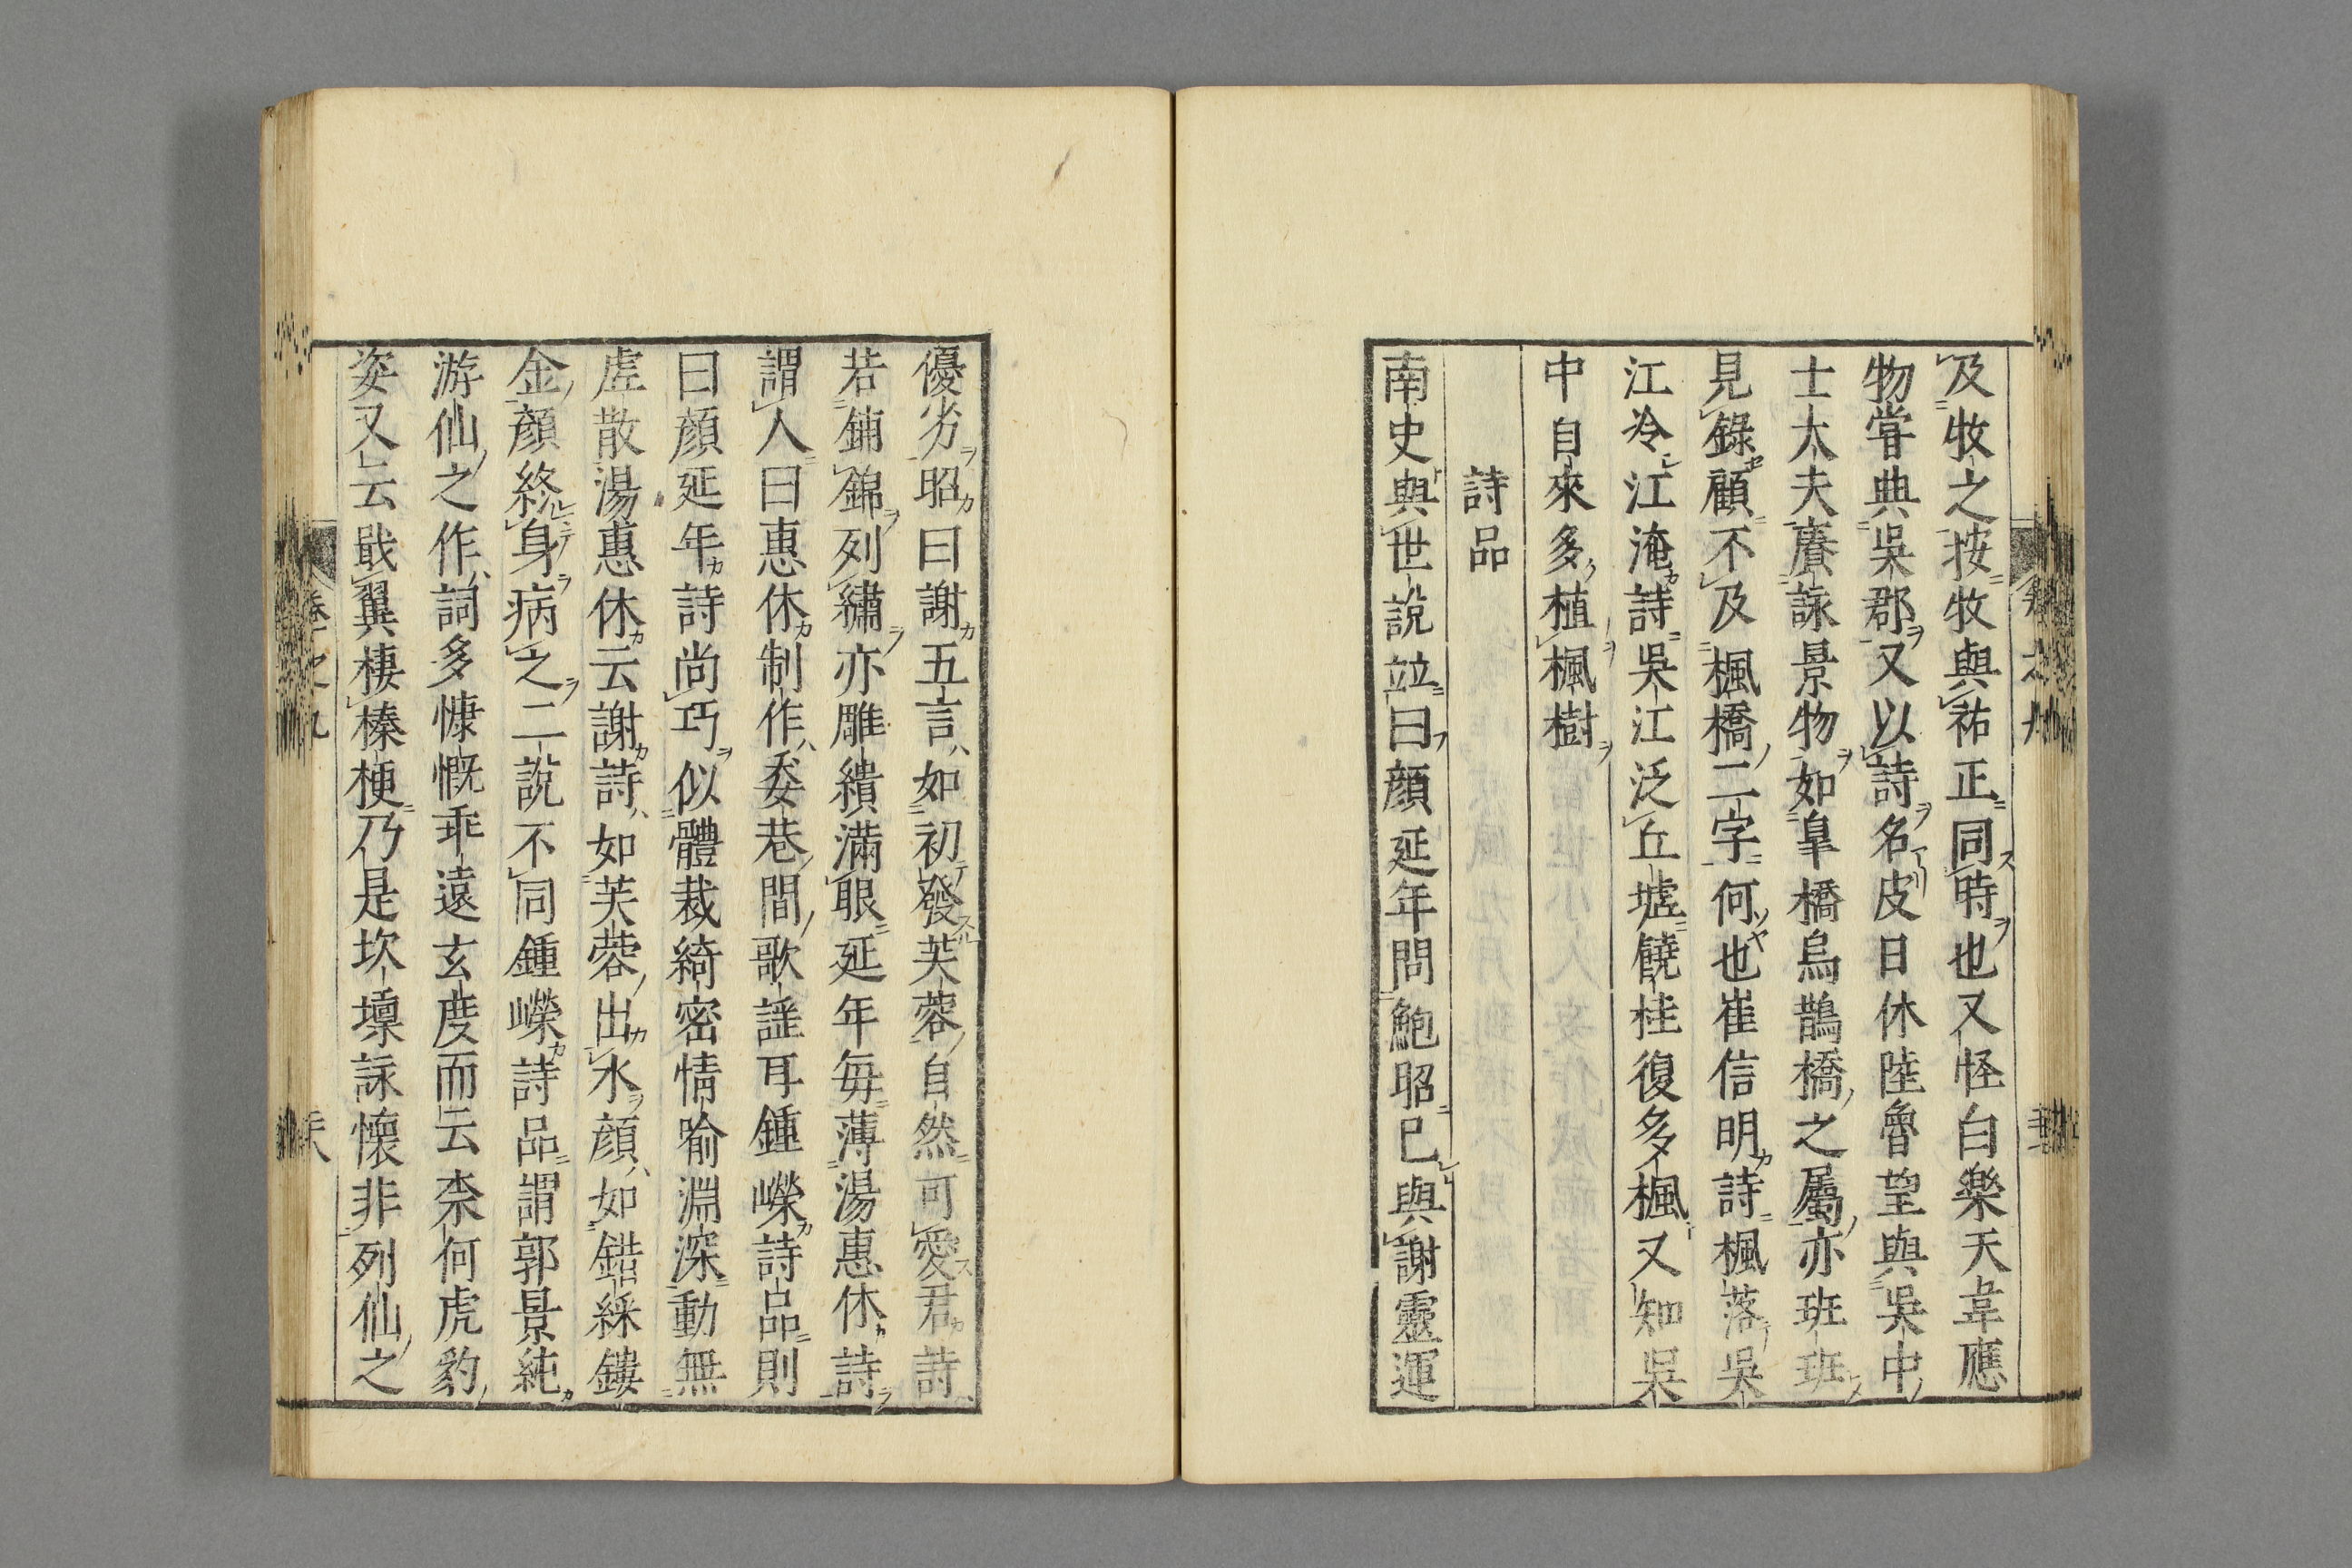 及牧之按牧與祐正同時也又怪白樂天韋應
物嘗典吳郡又以詩名皮日休陸魯望與吳中
士大夫賡詠景物如皐橋烏鵲橋之屬亦班班
見錄顧不及楓橋二字何也崔信明詩楓落吳
江冷江淹詩吳江泛丘墟饒桂復多楓又知吳
中自來多植楓樹
詩品
南史與世說竝曰顏延年問鮑昭已與謝靈運
優劣昭曰謝五言如初發芙蓉自然可愛君詩
若鋪錦列繡亦雕繢滿眼延年每薄湯惠休詩
謂人曰惠休制作委巷間歌謠耳鍾嶸詩品則
曰顏延年詩尚巧似體裁綺密情喻淵深動無
虛散湯惠休云謝詩如芙蓉出水顏如錯綵鏤
金顏終身病之二說不同鍾嶸詩品謂郭景純
游仙之作詞多慷慨乖遠玄度而云柰何虎豹
姿又云戢翼棲榛梗乃是坎壈詠懷非列仙之
卷之九